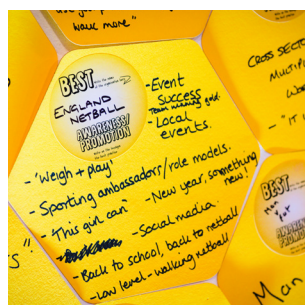 walk more"
BEST
ENGLAND
NETBALL
AWARENESS/
PROMOTION
- Event
success
Team winning gold.
- Local
events.
- 'Weigh + play'
- Sporting ambassadors/role models.
- "This girl can"
- New year, something
new!
- Social media.
- Back to school, back to netball
- Low level - walking netball
CROSS SECT
MULTI
WO
- "IT
BEST
Man
s"